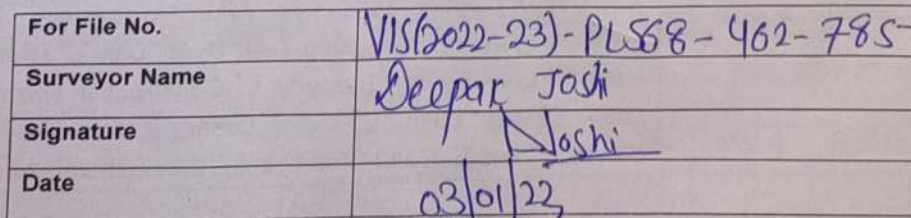 For File No. VIS(2022-23)-PL568-462-785
Surveyor Name Deepak Joshi
Signature DJoshi
Date 03/01/22